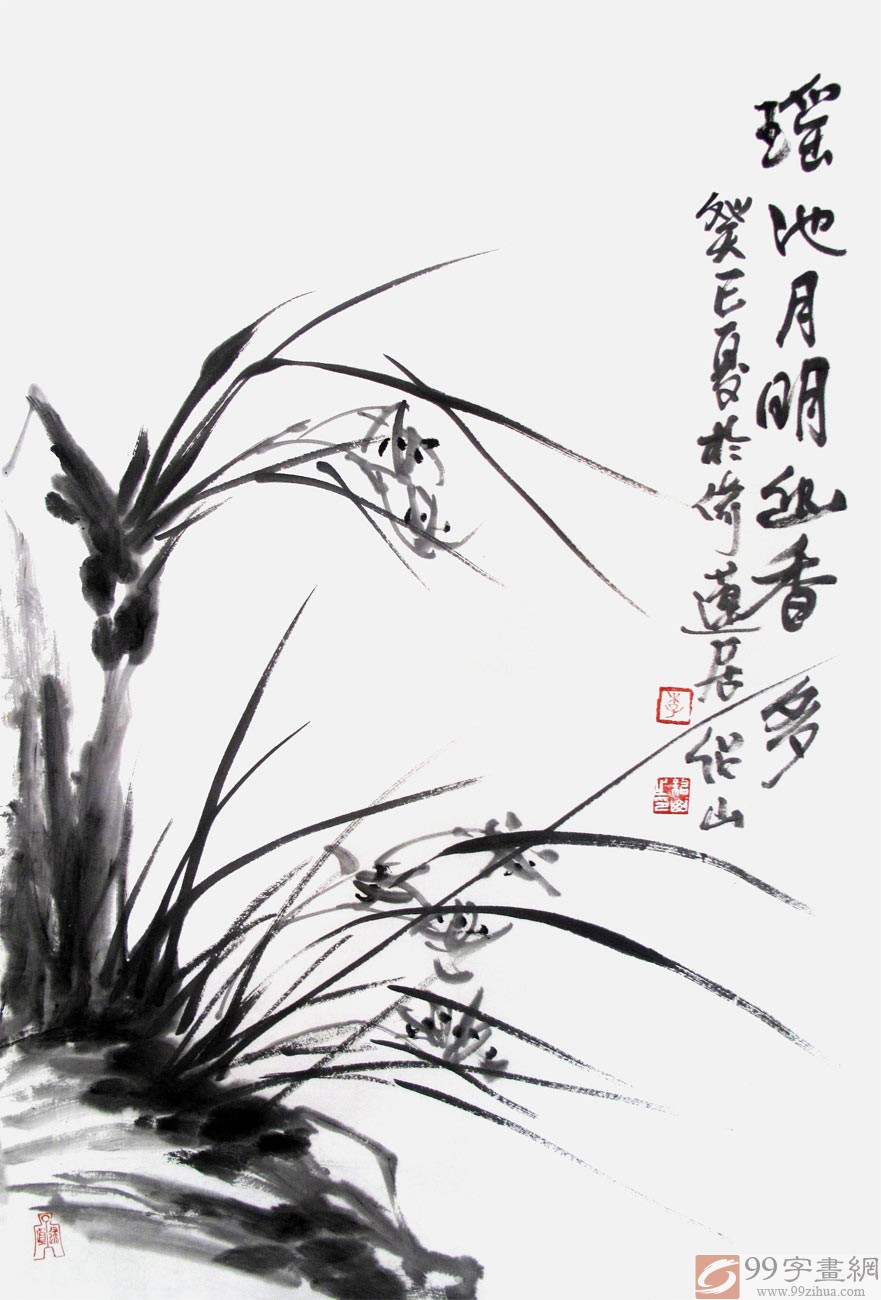 瑶池月明幽香多
癸巳夏於倚蓮居紹山
李
99字畫網
www.99zihua.com